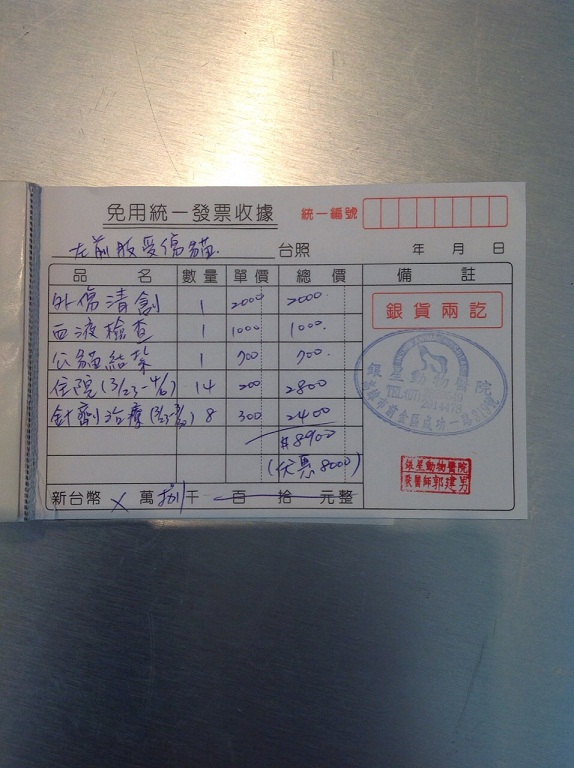 免用統一發票收據 統一編號
左前肢受傷貓 台照 年 月 日
品 名 數量 單價 總價 備註
外傷清創 1 2000 2000
血液檢查 1 1000 1000
公貓結紮 1 700 700
住院(3/23-4/6) 14 200 2800
針劑治療 8 300 2400
$8900
(優惠8000)
新台幣 X 萬 捌 千 百 拾 元整
銀貨兩訖
銀星動物醫院
TEL
銀星動物醫院
獸醫師郭建男